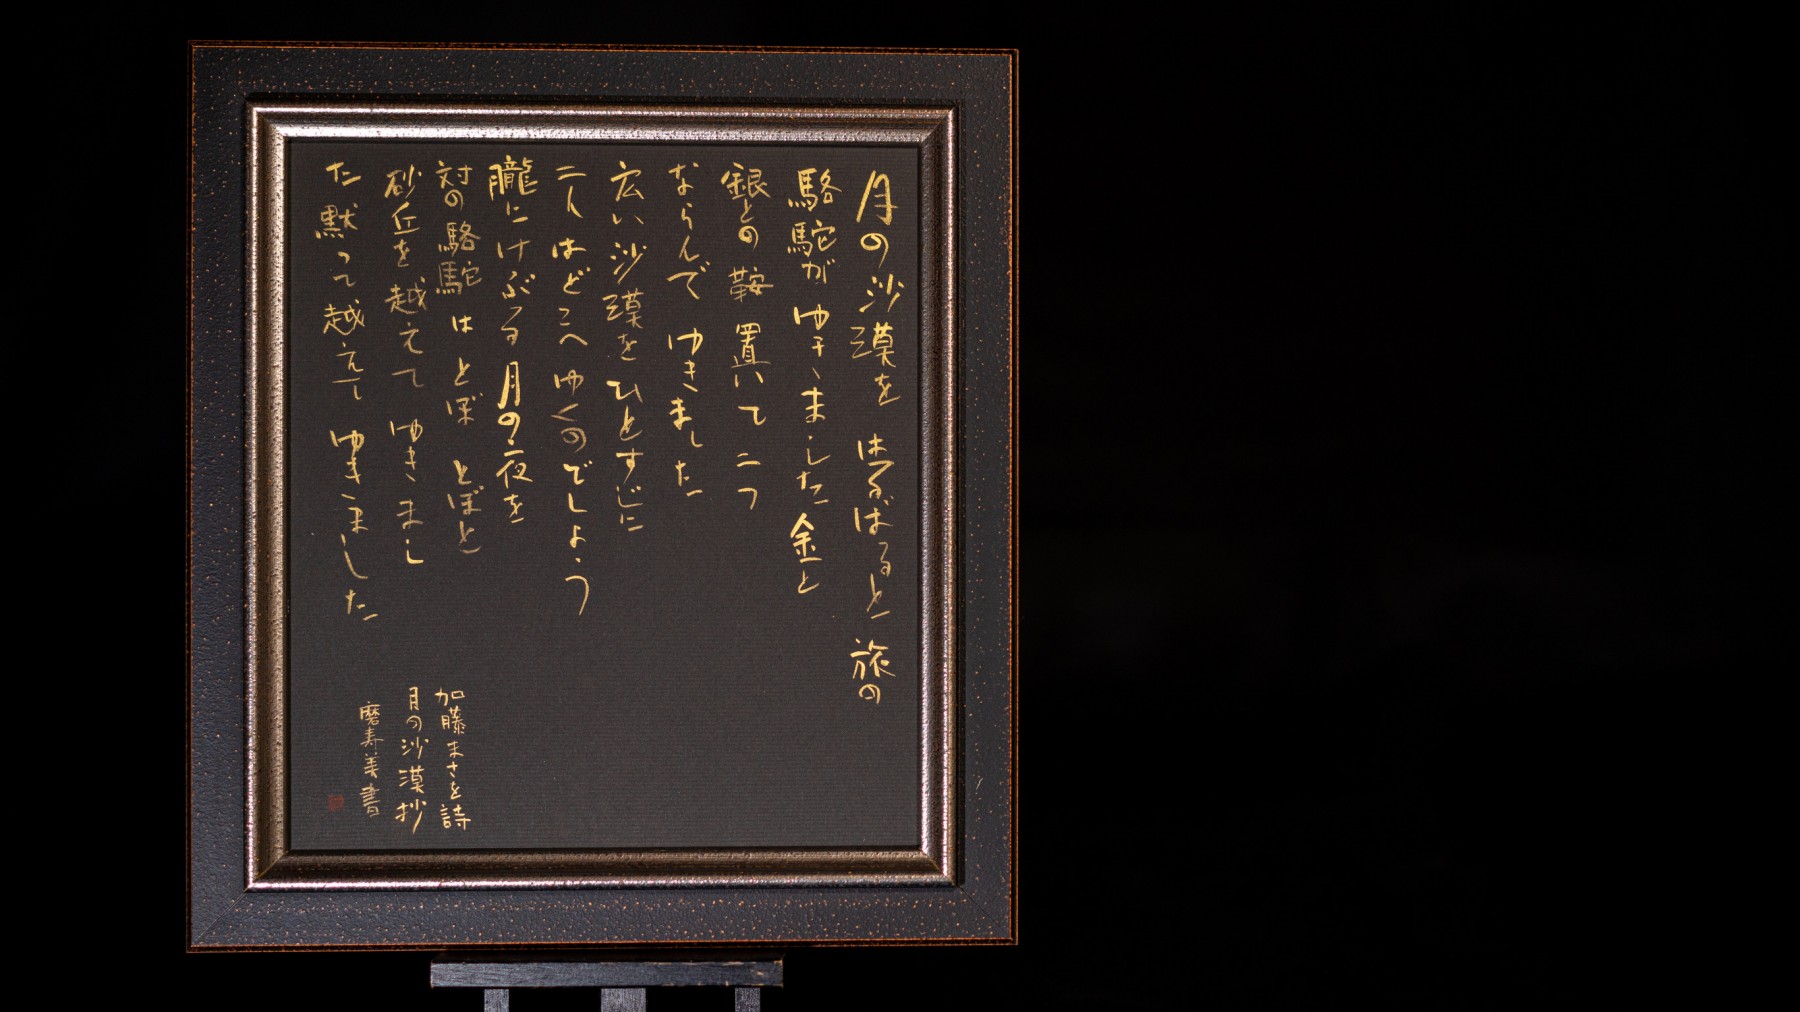 月の沙漠を はるばると 旅の
駱駝が ゆきました 金と
銀との 鞍 置いて 二つ
ならんで ゆきました
広い沙漠を ひとすじに
二人はどこへ ゆくのでしょう
朧にけぶる 月の夜を
対の駱駝は とぼ とぼと
砂丘を越えて ゆきまし
た 黙って越えて ゆきました
加藤まさを詩
月の沙漠抄
磨寿美書